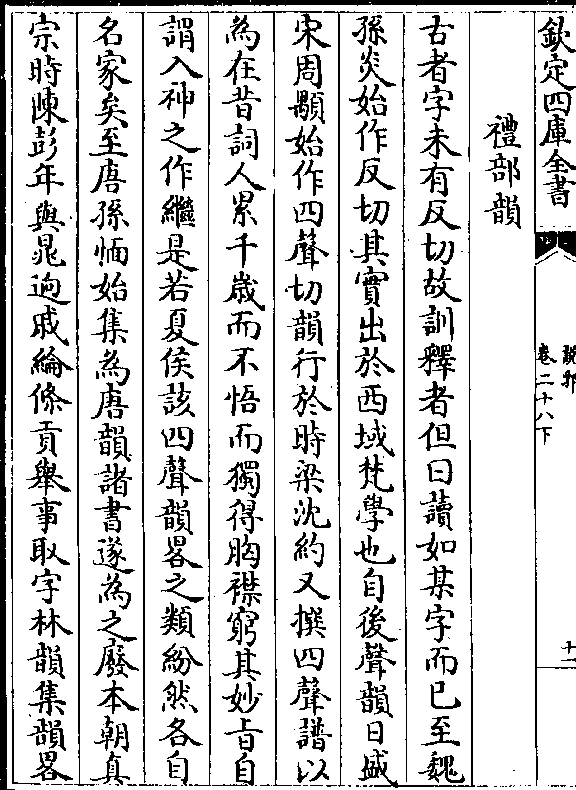 欽定四庫全書
說郛
卷二十八下
十二
禮部韻
古者字未有反切故訓釋者但曰讀如某字而已至魏
孫炎始作反切其實出於西域梵學也自後聲韻日盛
宋周顒始作四聲切韻行於時梁沈約又撰四聲譜以
為在昔詞人累千歲而不悟而獨得胸襟窮其妙旨自
謂入神之作繼是若夏侯該四聲韻畧之類紛然各自
名家矣至唐孫愐始集為唐韻諸書遂為之廢本朝真
宗時陳彭年與晁迥戚綸條貢舉事取字林韻集韻畧